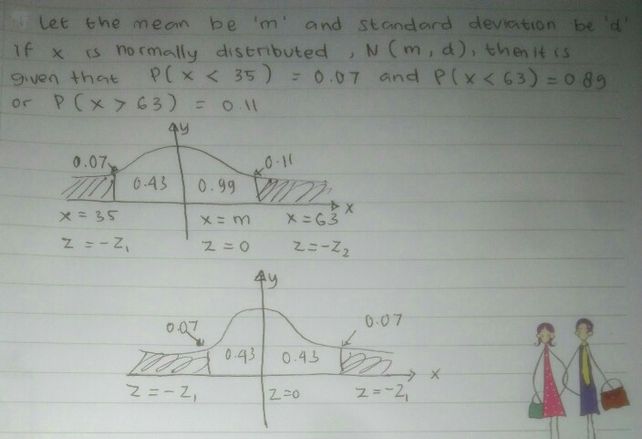 Let the mean be 'm' and standard deviation be 'd'
If x is normally distributed, N(m,d), then it is
given that P(x < 35) = 0.07 and P(x < 63) = 0 89
or P(x > 63) = 0.11
y
0.07 0.11
0.43 0.99
x
x = 35 x = m x = 63
z = -z₁ z = 0 z = -z₂
y
0.07 0.07
0.43 0.43
x
z = -z₁ z=0 z = -z₁